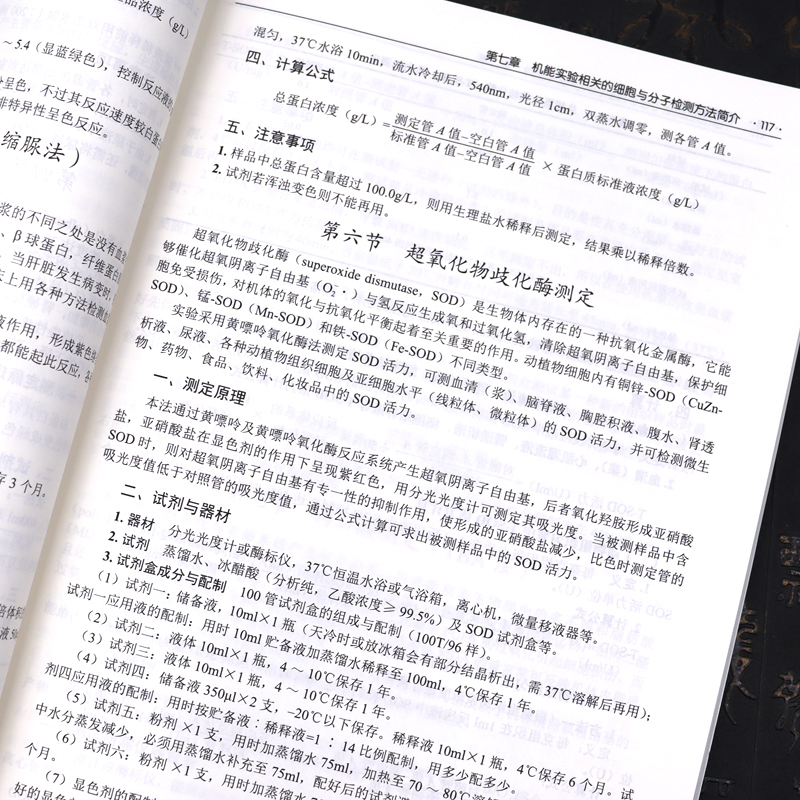 品浓度（g/L）
～5.4（显蓝绿色），控制反应液的
呈色，不过其反应速度较白蛋
非特异性呈色反应。
缩脲法）
浆的不同之处是没有血
、β球蛋白，纤维蛋白
当肝脏发生病变时，
上用各种方法检测血
作用，形成紫色络
都能起此反应，各
3个月。
第七章 机能实验相关的细胞与分子检测方法简介 ·117·
混匀，37℃水浴10min，流水冷却后，540nm，光径1cm，双蒸水调零，测各管A值。
四、计算公式
总蛋白浓度（g/L）=测定管A值-空白管A值/标准管A值-空白管A值×蛋白质标准液浓度（g/L）
五、注意事项
1. 样品中总蛋白含量超过100.0g/L，则用生理盐水稀释后测定，结果乘以稀释倍数。
2. 试剂若浑浊变色则不能再用。
第六节 超氧化物歧化酶测定
超氧化物歧化酶（superoxide dismutase，SOD）是生物体内存在的一种抗氧化金属酶，它能
够催化超氧阴离子自由基（O₂⁻·）与氢反应生成氧和过氧化氢，清除超氧阴离子自由基，保护细
胞免受损伤，对机体的氧化与抗氧化平衡起着至关重要的作用。动植物细胞内有铜锌-SOD（CuZn-
SOD）、锰-SOD（Mn-SOD）和铁-SOD（Fe-SOD）不同类型。
实验采用黄嘌呤氧化酶法测定SOD活力，可测血清（浆）、脑脊液、胸腔积液、腹水、肾透
析液、尿液、各种动植物组织细胞及亚细胞水平（线粒体、微粒体）的SOD活力，并可检测微生
物、药物、食品、饮料、化妆品中的SOD活力。
一、测定原理
本法通过黄嘌呤及黄嘌呤氧化酶反应系统产生超氧阴离子自由基，后者氧化羟胺形成亚硝酸
盐，亚硝酸盐在显色剂的作用下呈现紫红色，用分光光度计可测定其吸光度。当被测样品中含
SOD时，则对超氧阴离子自由基有专一性的抑制作用，使形成的亚硝酸盐减少，比色时测定管的
吸光度值低于对照管的吸光度值，通过公式计算可求出被测样品中的SOD活力。
二、试剂与器材
1. 器材 分光光度计或酶标仪，37℃恒温水浴或气浴箱，离心机，微量移液器等。
2. 试剂 蒸馏水、冰醋酸（分析纯，乙酸浓度≥99.5%）及SOD试剂盒等。
3. 试剂盒成分与配制 100管试剂盒的组成与配制（100T/96样）。
（1）试剂一：储备液，10ml×1瓶（天冷时或放冰箱会有部分结晶析出，需37℃溶解后再用）；
试剂一应用液的配制：用时10ml贮备液加蒸馏水稀释至100ml，4℃保存1年。
（2）试剂二：液体10ml×1瓶，4～10℃保存1年。
（3）试剂三：液体10ml×1瓶，4～10℃保存1年。
（4）试剂四：储备液350μl×2支，-20℃以下保存。稀释液10ml×1瓶，4℃保存6个月。试
剂四应用液的配制：用时按贮备液∶稀释液=1∶14比例配制，用多少配多少。
（5）试剂五：粉剂×1支，用时加蒸馏水75ml，加热至70～80℃
中水分蒸发减少，必须用蒸馏水补充至75ml，配好后的试剂
个月。
（6）试剂六：粉剂×1支，用时加蒸馏水
（7）显色剂的配制
好的显色